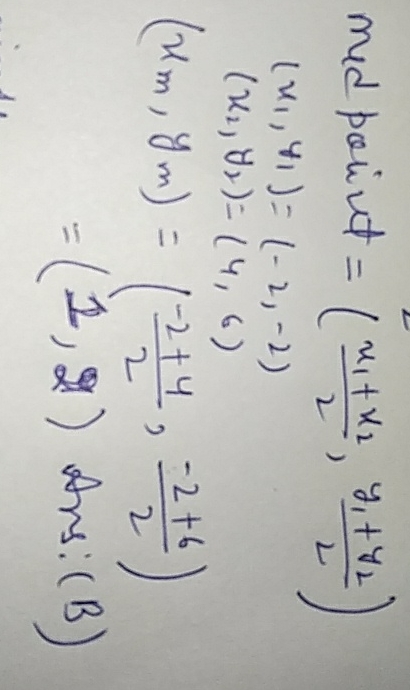 mid point = (x₁+x₂/2, y₁+y₂/2)
(x₁, y₁) = (-2, -2)
(x₂, y₂) = (4, 6)
(xm, ym) = (-2+4/2, -2+6/2)
= (1, 2) Ans: (B)